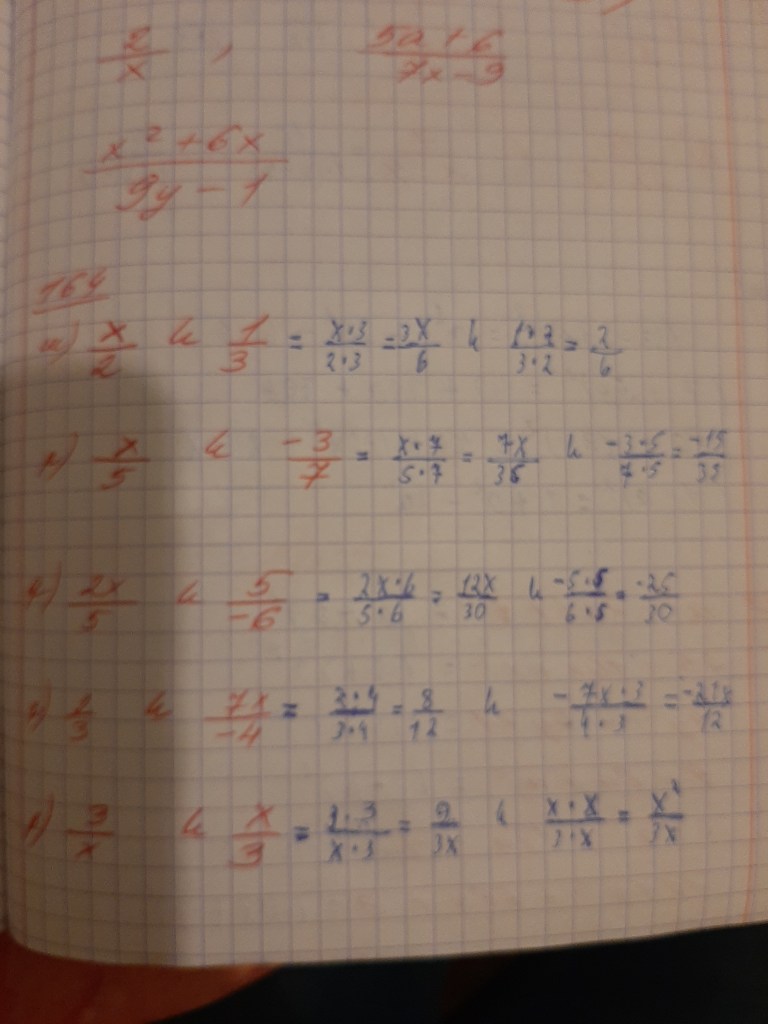 2/x , 5a+6/7x-9
x²+6x/9y-1
164
x/2 և 1/3 = x·3/2·3 = 3x/6 և 1·2/3·2 = 2/6
x/5 և -3/7 = x·7/5·7 = 7x/35 և -3·5/7·5 = -15/35
2x/5 և 5/-6 = 2x·6/5·6 = 12x/30 և -5·5/6·5 = -25/30
2/3 և 7x/-4 = 2·4/3·4 = 8/12 և -7x·3/4·3 = -21x/12
3/x և x/3 = 3·3/x·3 = 9/3x և x·x/3·x = x²/3x